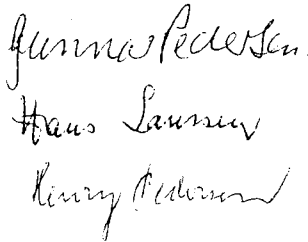 Gunnar Pedersen
Hans Laursen
Henry Pedersen